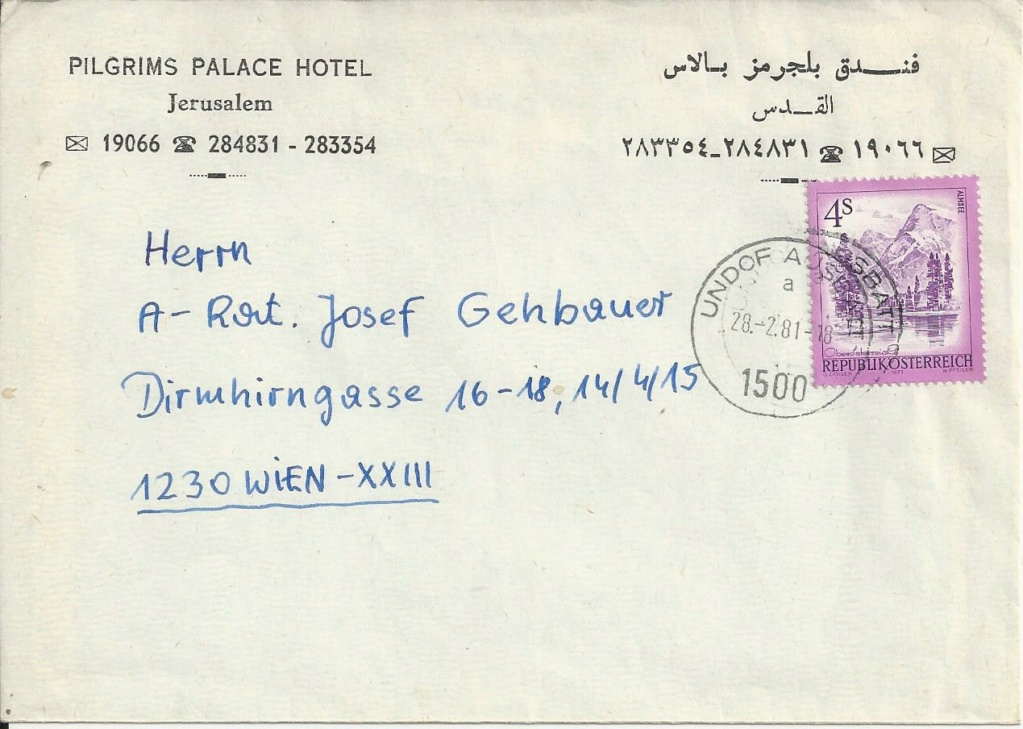 PILGRIMS PALACE HOTEL
Jerusalem
19066 ☎ 284831 - 283354
فندق بلجرمز بالاس
القدس
٢٨٣٣٥٤-٢٨٤٨٣١ ☎ ١٩٠٦٦
4S
ALMSEE
REPUBLIK ÖSTERREICH
UNDOF AUSBATT
a
28.-2.81-18
1500
Herrn
A-Rat. Josef Gehbauer
Dirmhirngasse 16-18, 14/4/15
1230 WIEN-XXIII